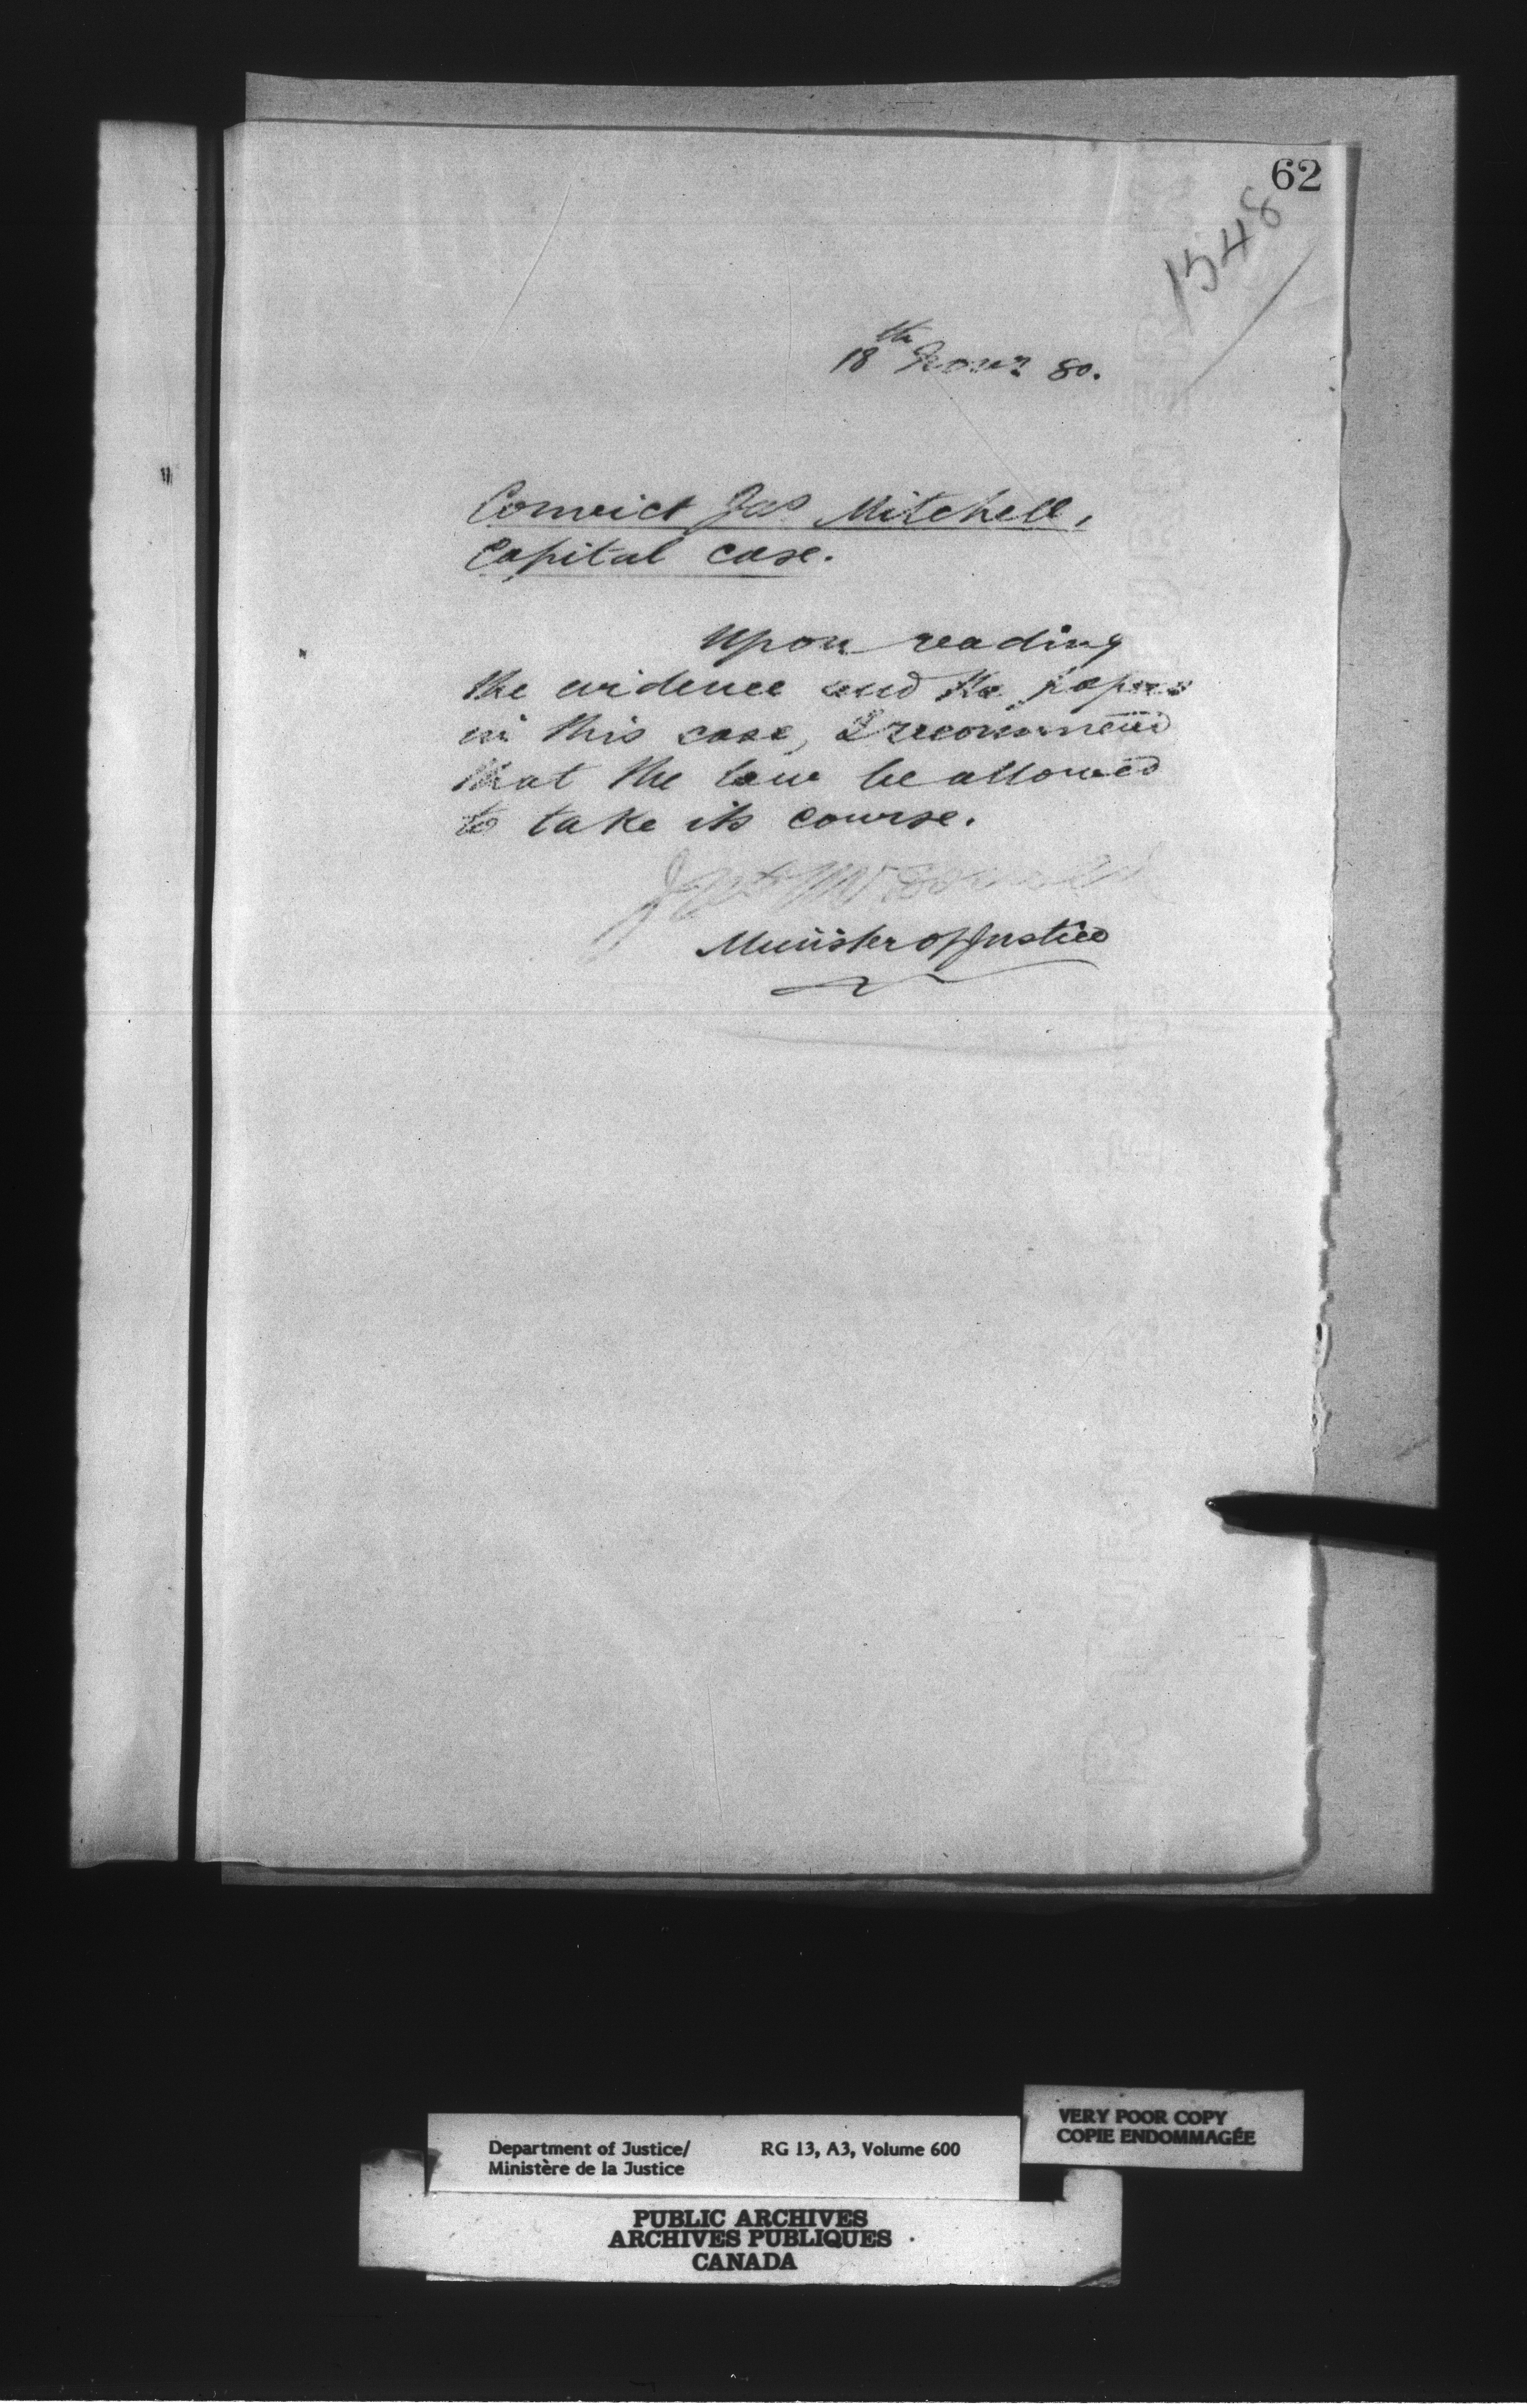 62
1548
18th Novr 80.
Convict Jas Mitchell,
Capital case.
Upon reading
the evidence and the papers
in this case, I recommend
that the law be allowed
to take its course.
Jas McDonald
Minister of Justice
Department of Justice/ RG 13, A3, Volume 600
Ministère de la Justice
VERY POOR COPY
COPIE ENDOMMAGÉE
PUBLIC ARCHIVES
ARCHIVES PUBLIQUES
CANADA